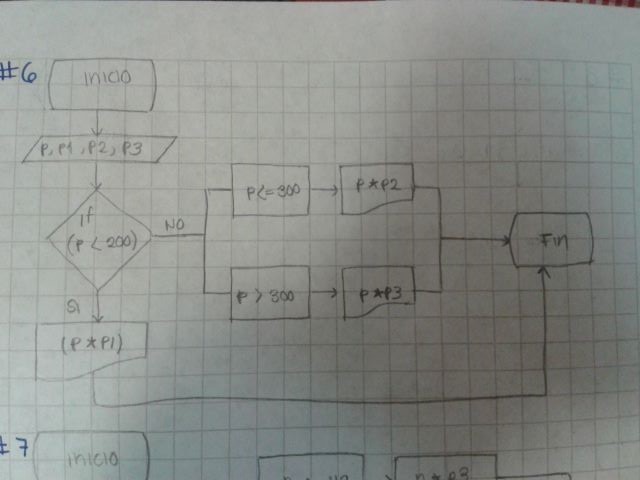 #6
Inicio
P, P1, P2, P3
If
(P < 200)
NO
P<=300
P*P2
P > 300
P*P3
Fin
SI
(P*P1)
#7
Inicio